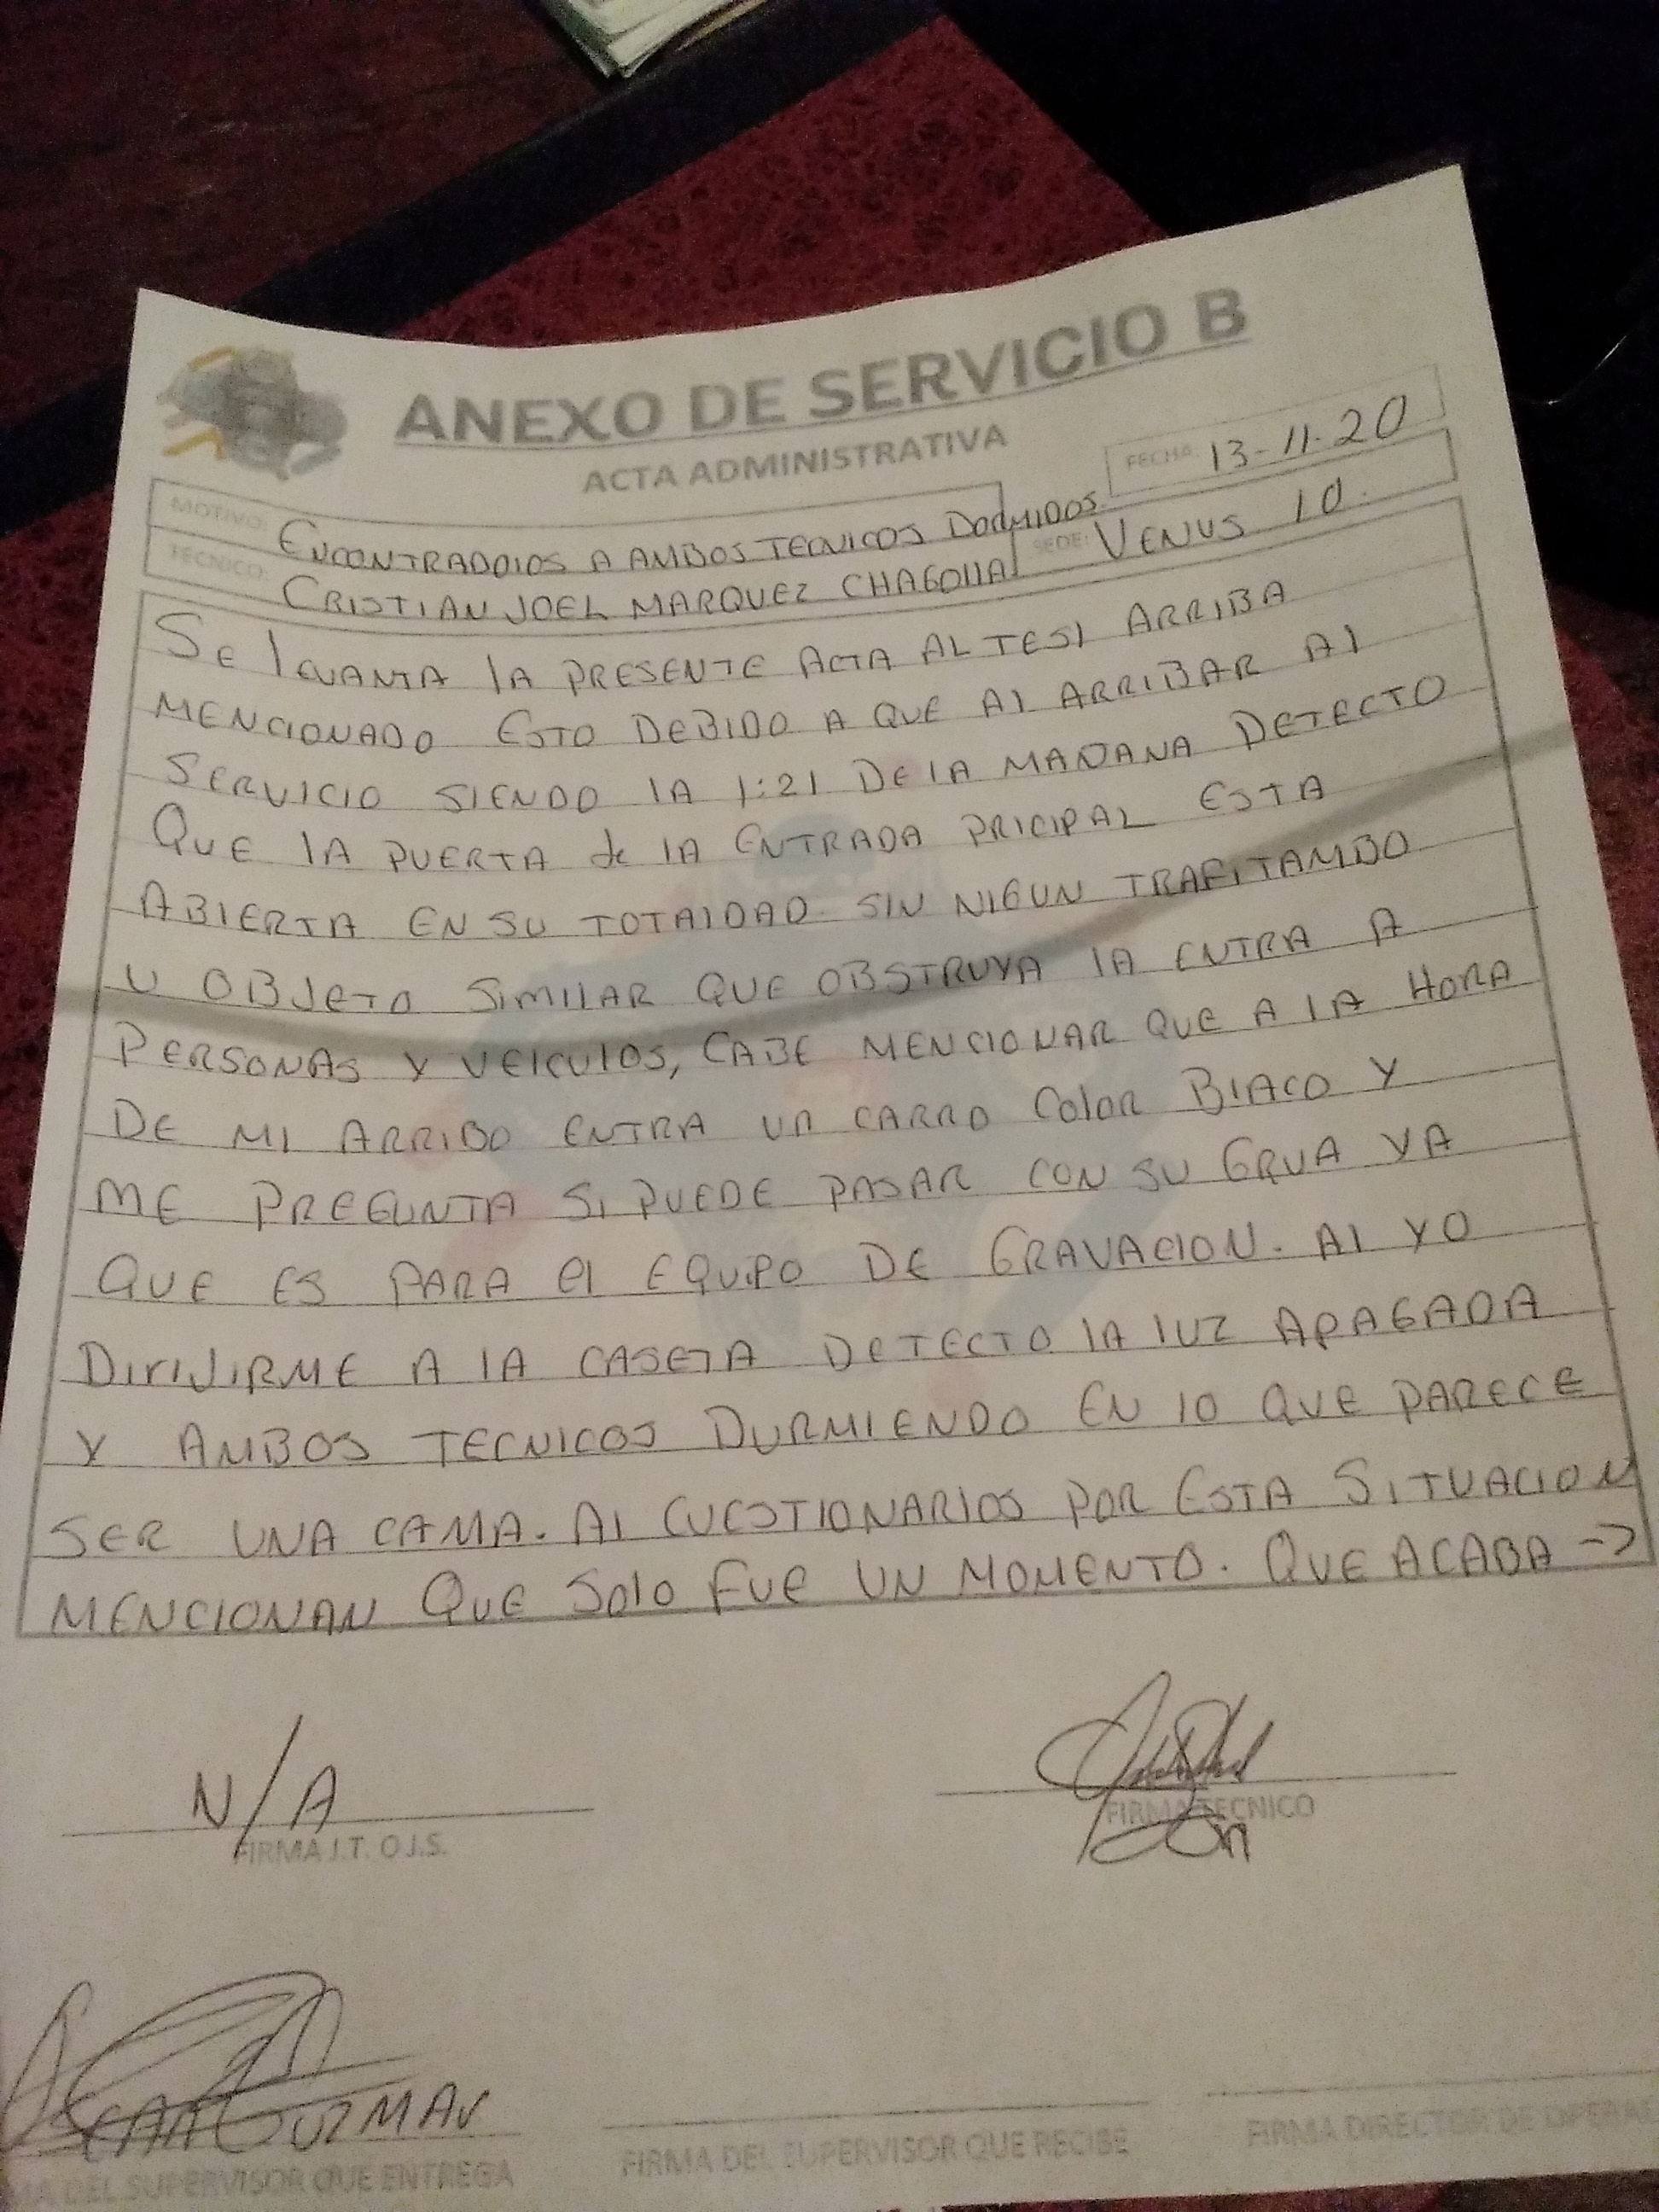 ANEXO DE SERVICIO B
ACTA ADMINISTRATIVA
FECHA: 13-11-20
MOTIVO: ENCONTRADOLOS A AMBOS TECNICOS DORMIDOS.
TECNICO: CRISTIAN JOEL MARQUEZ CHAGOLLA
SEDE: VENUS 10.
SE LEVANTA LA PRESENTE ACTA AL TESI ARRIBA
MENCIONADO ESTO DEBIDO A QUE AL ARRIBAR AL
SERVICIO SIENDO LA 1:21 DE LA MAÑANA DETECTO
QUE LA PUERTA de LA ENTRADA PRICIPAL ESTA
ABIERTA EN SU TOTALIDAD. SIN NIGUN TRAFITAMBO
U OBJETO SIMILAR QUE OBSTRUYA LA ENTRA A
PERSONAS Y VEICULOS, CABE MENCIONAR QUE A LA HORA
DE MI ARRIBO ENTRA UN CARRO COLOR BLACO Y
ME PREGUNTA SI PUEDE PASAR CON SU GRUA YA
QUE ES PARA El EQUIPO DE GRAVACION. AL YO
DIRIJIRME A LA CASETA DETECTO LA LUZ APAGADA
Y AMBOS TECNICOS DURMIENDO EN LO QUE PARECE
SER UNA CAMA. AL CUESTIONARLOS POR ESTA SITUACION
MENCIONAN QUE SOLO FUE UN MOMENTO. QUE ACABA ->
N/A
FIRMA J.T. O J.S.
FIRMA TECNICO
OSCAR GUZMAN
MA DEL SUPERVISOR QUE ENTREGA
FIRMA DEL SUPERVISOR QUE RECIBE
FIRMA DIRECTOR DE OPERAC